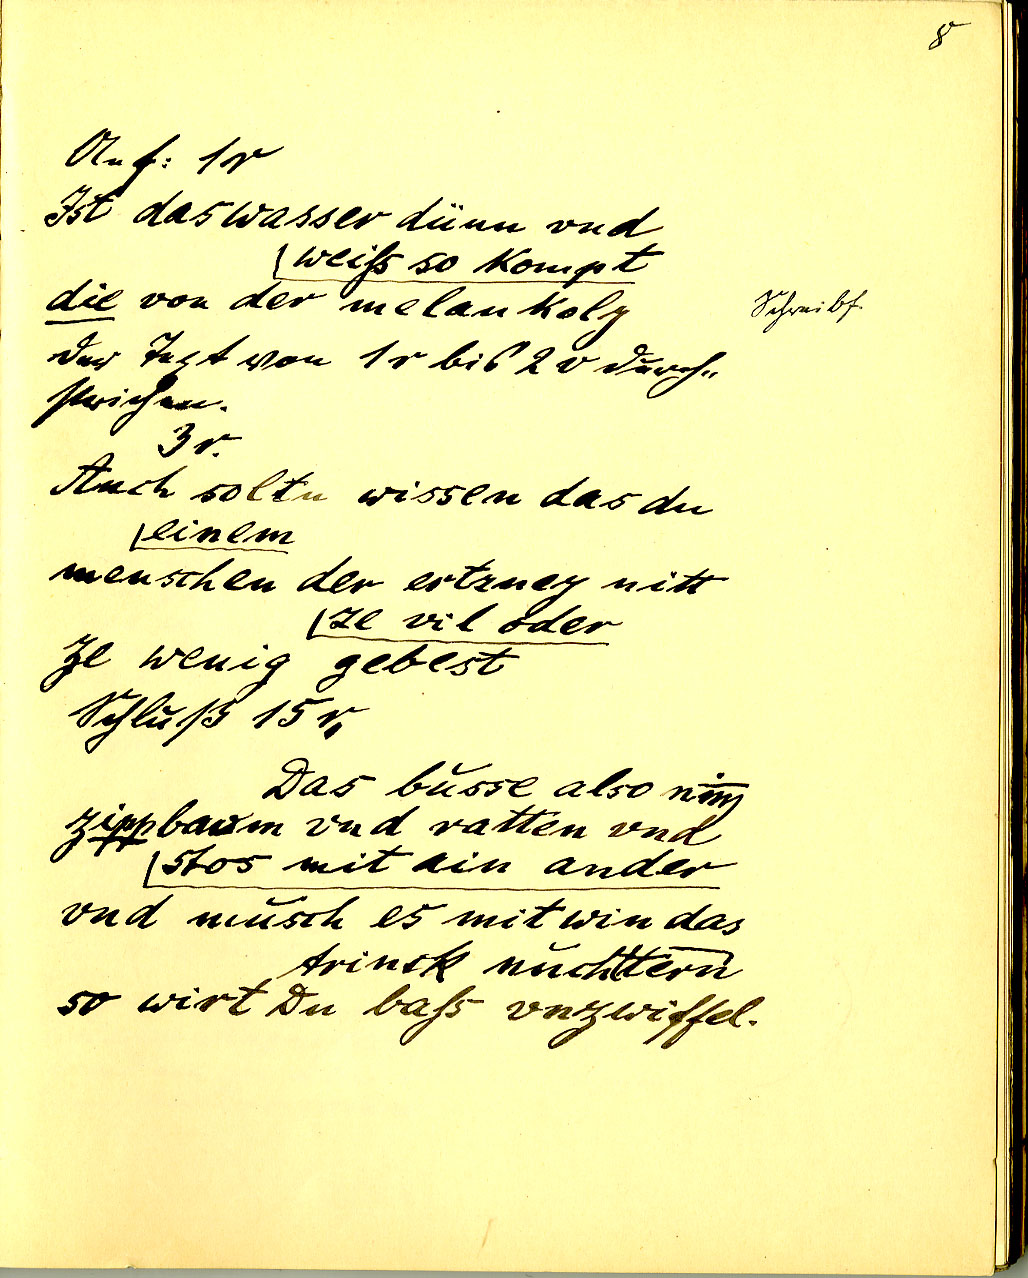 8
Anf: 1r
Ist das wasser dünn vnd
weiss so kompt
die von der melankoly
Schreibf.
Der Text von 1r bis 2v durch„
strichen.
3r.
Auch soltu wissen das du
einem
menschen der ertzney nitt
ze vil oder
ze wenig gebest
Schluß 15r,
Das bŭsse also nim̅
zippbawm vnd ratten vnd
stos mit ain ander
vnd mŭsch es mit win das
trinsk nŭchttern
so wirt Du bass vnzwiffel.